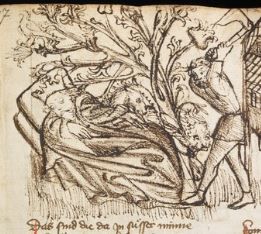 Das sind die da in susser minne